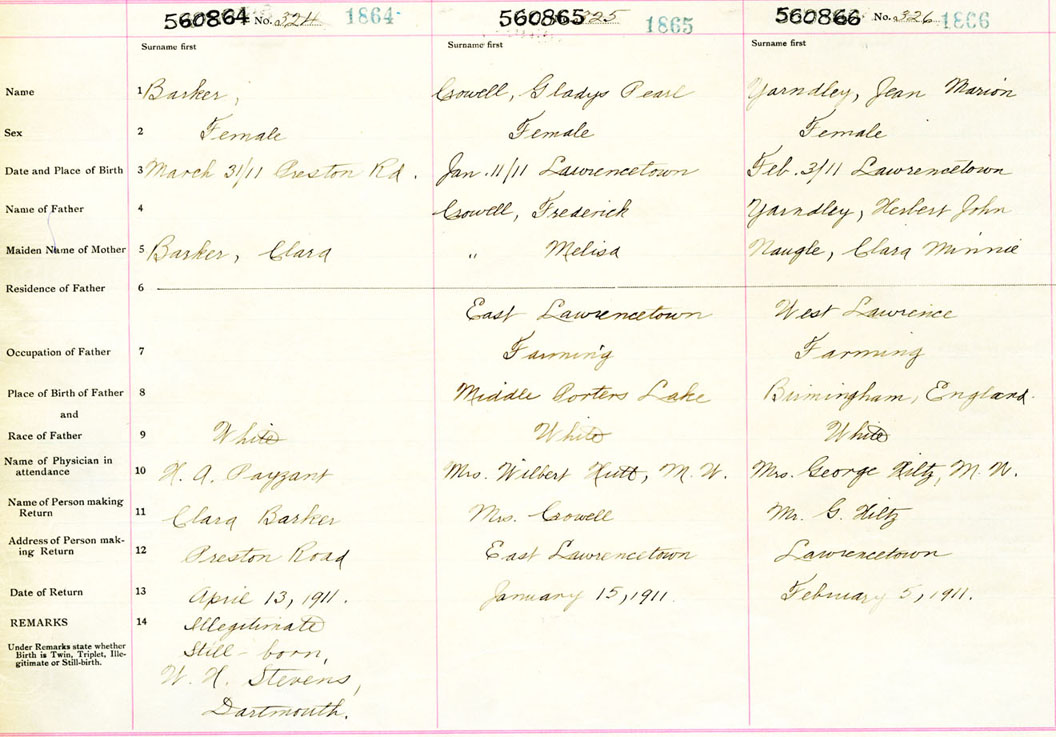 560864 No. 324 1864 560865 325 1865 560866 No. 326 1866
Surname first Surname first Surname first
Name 1 Barker, Crowell, Gladys Pearl Yarndley, Jean Marion
Sex 2 Female Female Female
Date and Place of Birth 3 March 31/11 Preston Rd. Jan. 11/11 Lawrencetown Feb. 3/11 Lawrencetown
Name of Father 4 Crowell, Frederick Yarndley, Herbert John
Maiden Name of Mother 5 Barker, Clara " Melisa Naugle, Clara Minnie
Residence of Father 6
East Lawrencetown West Lawrence
Occupation of Father 7 Farming Farming
Place of Birth of Father 8 Middle Porters Lake Birmingham, England.
and
Race of Father 9 White White White
Name of Physician in
attendance 10 H. A. Payzant Mrs. Wilbert Hutt, M. W. Mrs. George Hiltz, M. W.
Name of Person making
Return 11 Clara Barker Mrs. Crowell Mr. G. Hiltz
Address of Person mak-
ing Return 12 Preston Road East Lawrencetown Lawrencetown
Date of Return 13 April 13, 1911. January 15, 1911. February 5, 1911.
REMARKS 14 Illegitimate
Under Remarks state whether
Birth is Twin, Triplet, Ille-
gitimate or Still-birth.
Still-born,
W. H. Stevens,
Dartmouth.